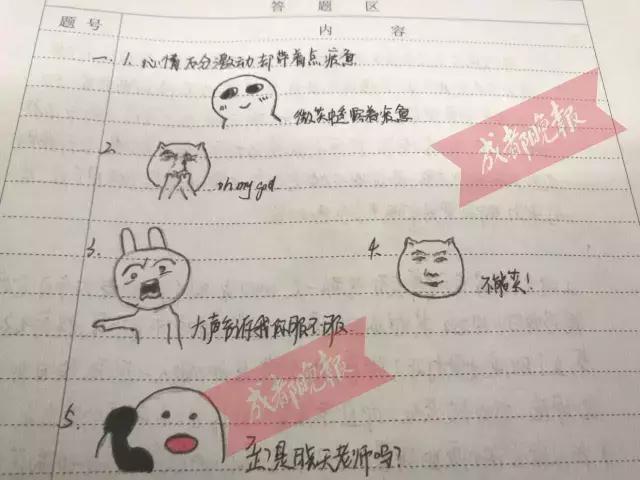 答题区
题号
内容
一、1. 心情十分激动却带着点疲惫
微笑中透露着疲惫
2.
oh my god
3.
4.
不能笑!
大声告诉我你服不服
5.
歪?是聊天老师吗?
成都晚报
成都晚报